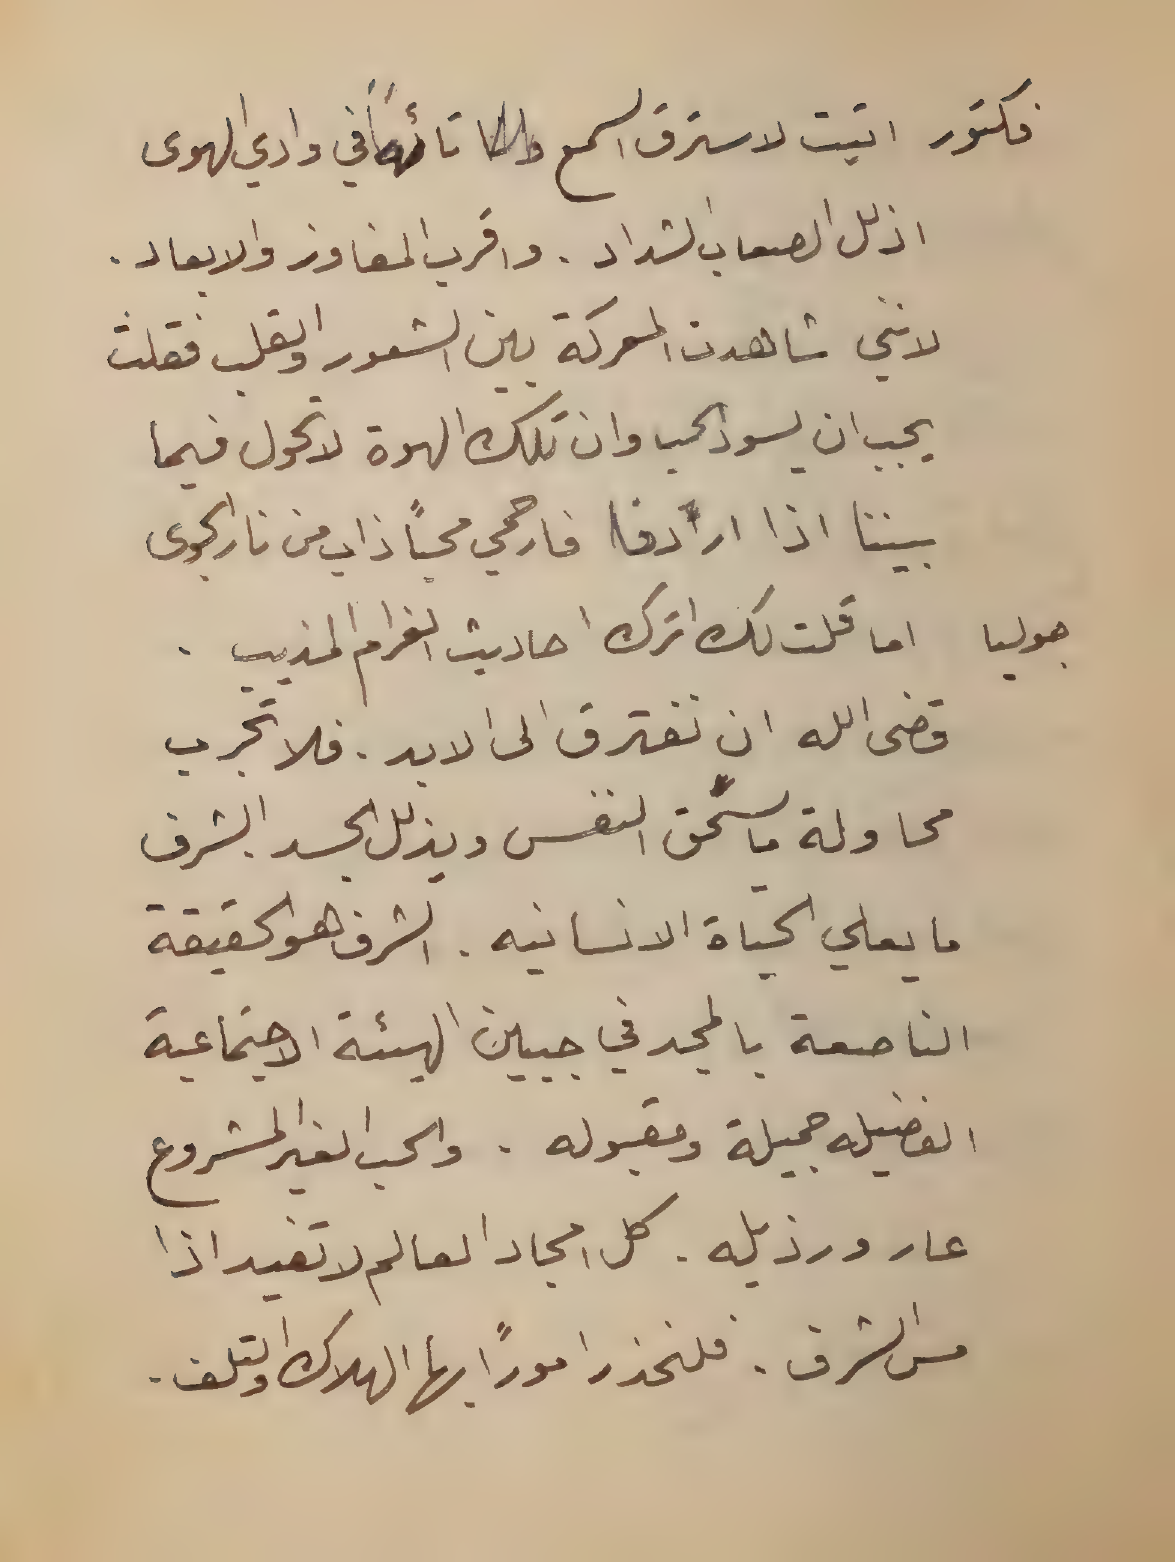 فكتور اتيت لاسترق السمع تائهاً في وادي الهوى
اذلل الصعاب الشداد . واقرب المفاوز والابعاد .
لانني شاهدت المعركة بين الشعور والقلب فقلت
يجب ان يسود الحب وان تلك الهوة لا تحول فيما
بيننا اذا فارحمي محباً ذاب من نار الجوى
جوليا اما قلت لك اترك احاديث الغرام المذيب .
قضى الله ان نفترق الى الابد . فلا تجرب
محاولة ما يسحق النفس ويذلل الجسد . الشرف
ما يعلي الحياة الانسانيه . الشرف هو الحقيقة
الناصعة بالمجد في جبين الهيئة الاجتماعية
الفضيله جميلة ومقبوله . والحب الغير المشروع
عار ورذيله . كل امجاد العالم لا تفيد اذا
مس الشرف . فلنحذر اموراً بها الهلاك والتلف .